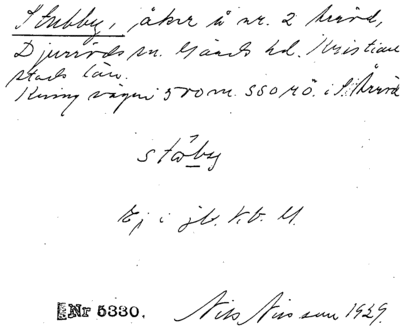 Stubby, åker å nr. 2 Årröd,
Djurröds sn. Gärds hd. Kristian
stads län.
Kring vägen 500 m. SSO RÖ. i S. Årröd
stòby
Ej i jb. K.V. M.
Nr 5330. Nils Nilsson 1929.